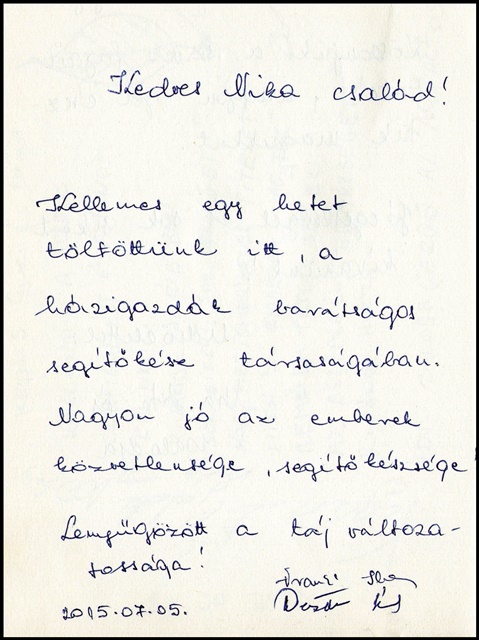 Kedves Nika család!
Kellemes egy hetet
töltöttünk itt, a
házigazdák barátságos
segítőkész társaságában.
Nagyon jó az emberek
közvetlensége, segítőkészsége
Lenyűgözött a táj változa-
tossága!
2015.07.05.